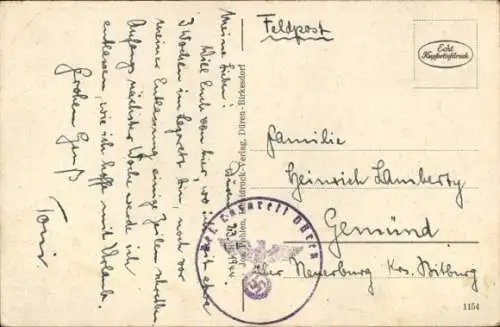 Meine Lieben!
Will Euch von hier, wo ich seit etwa
3 Wochen im Lazarett bin, noch vor
meiner Entlassung einige Zeilen schreiben
Anfangs nächster Woche werde ich
entlassen, wie ich hoffe mit Urlaub.
Großen Gruß
Toni.
Verlag, Düren-Birkesdorf
Feldpost
Echt
Kupfertiefdruck
Familie
Heinrich Lamberty
Gemünd
über Neuerburg Krs. Bitburg
Lazarett Düren
1154